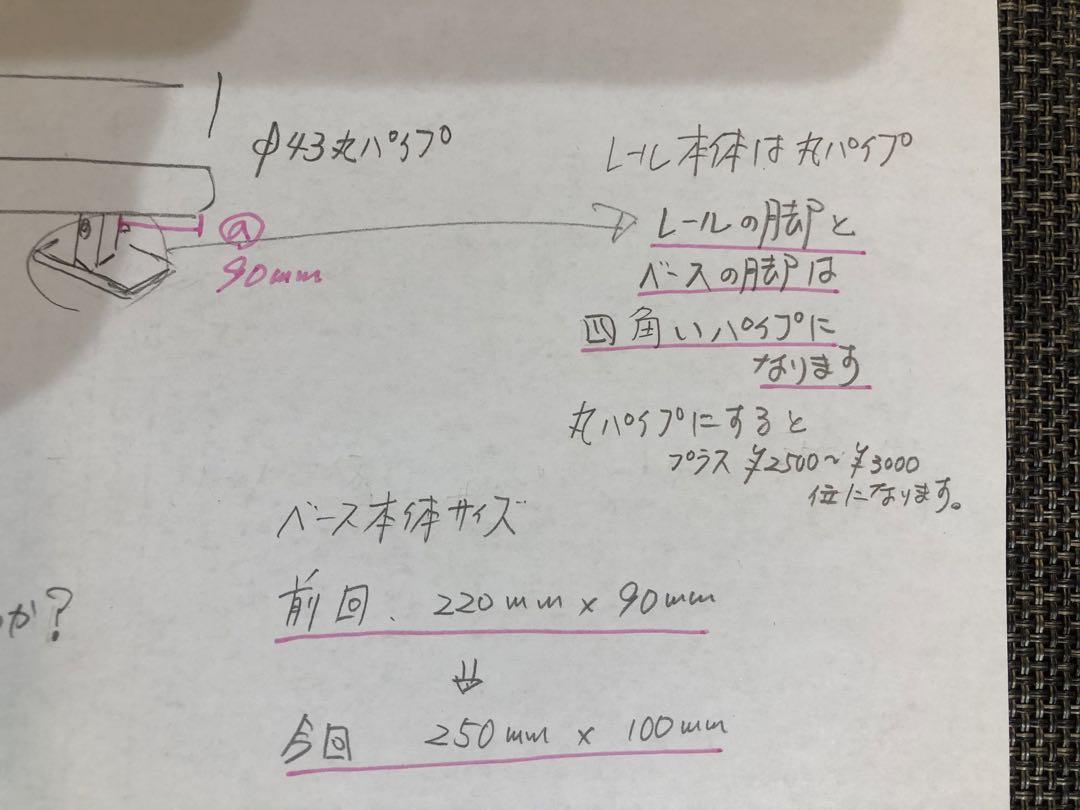 φ43丸パイプ
ⓐ
90mm
レール本体は丸パイプ
レールの脚と
ベースの脚は
四角いパイプに
なります
丸パイプにすると
プラス ¥2500〜¥3000
位になります。
ベース本体サイズ
前回、220mm×90mm
⇓
今回 250mm×100mm
か?